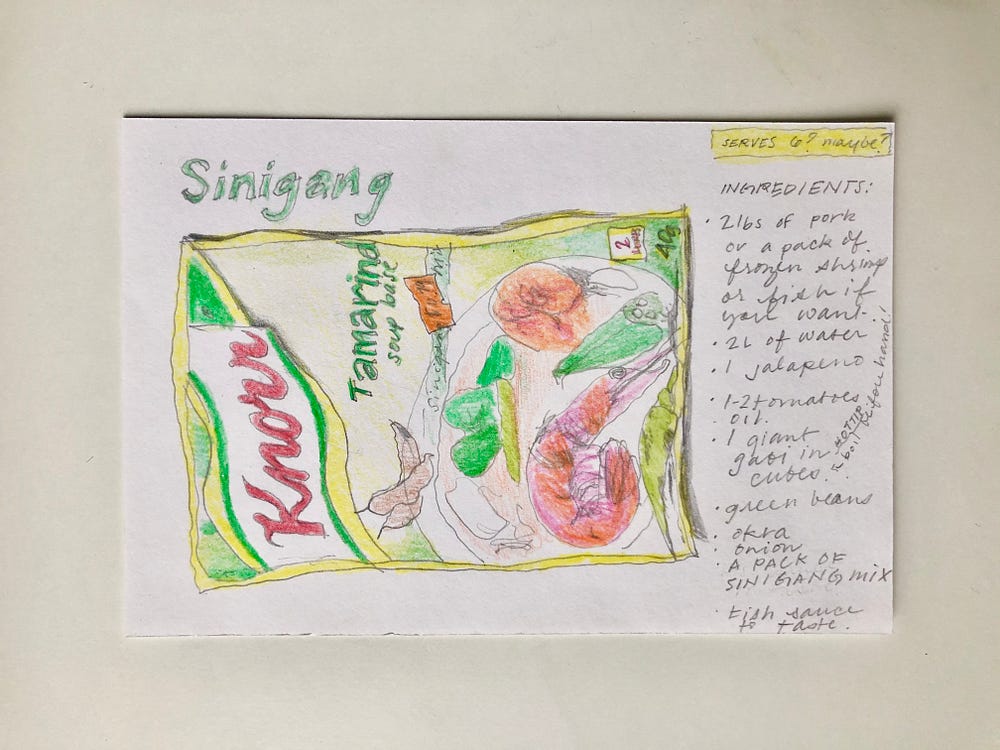 Sinigang
Knorr
Tamarind
soup base
sinigang mix
2
40g
SERVES 6? maybe?
INGREDIENTS:
· 2 lbs of pork
or a pack of
frozen shrimp
or fish if
you want.
· 2L of water
· 1 jalapeno
· 1-2 tomatoes
· oil.
· 1 giant
gabi in
cubes.
HOT TIP
boil beforehand!
· green beans
· okra
· onion
· A PACK OF
SINIGANG mix
· fish sauce
to taste.